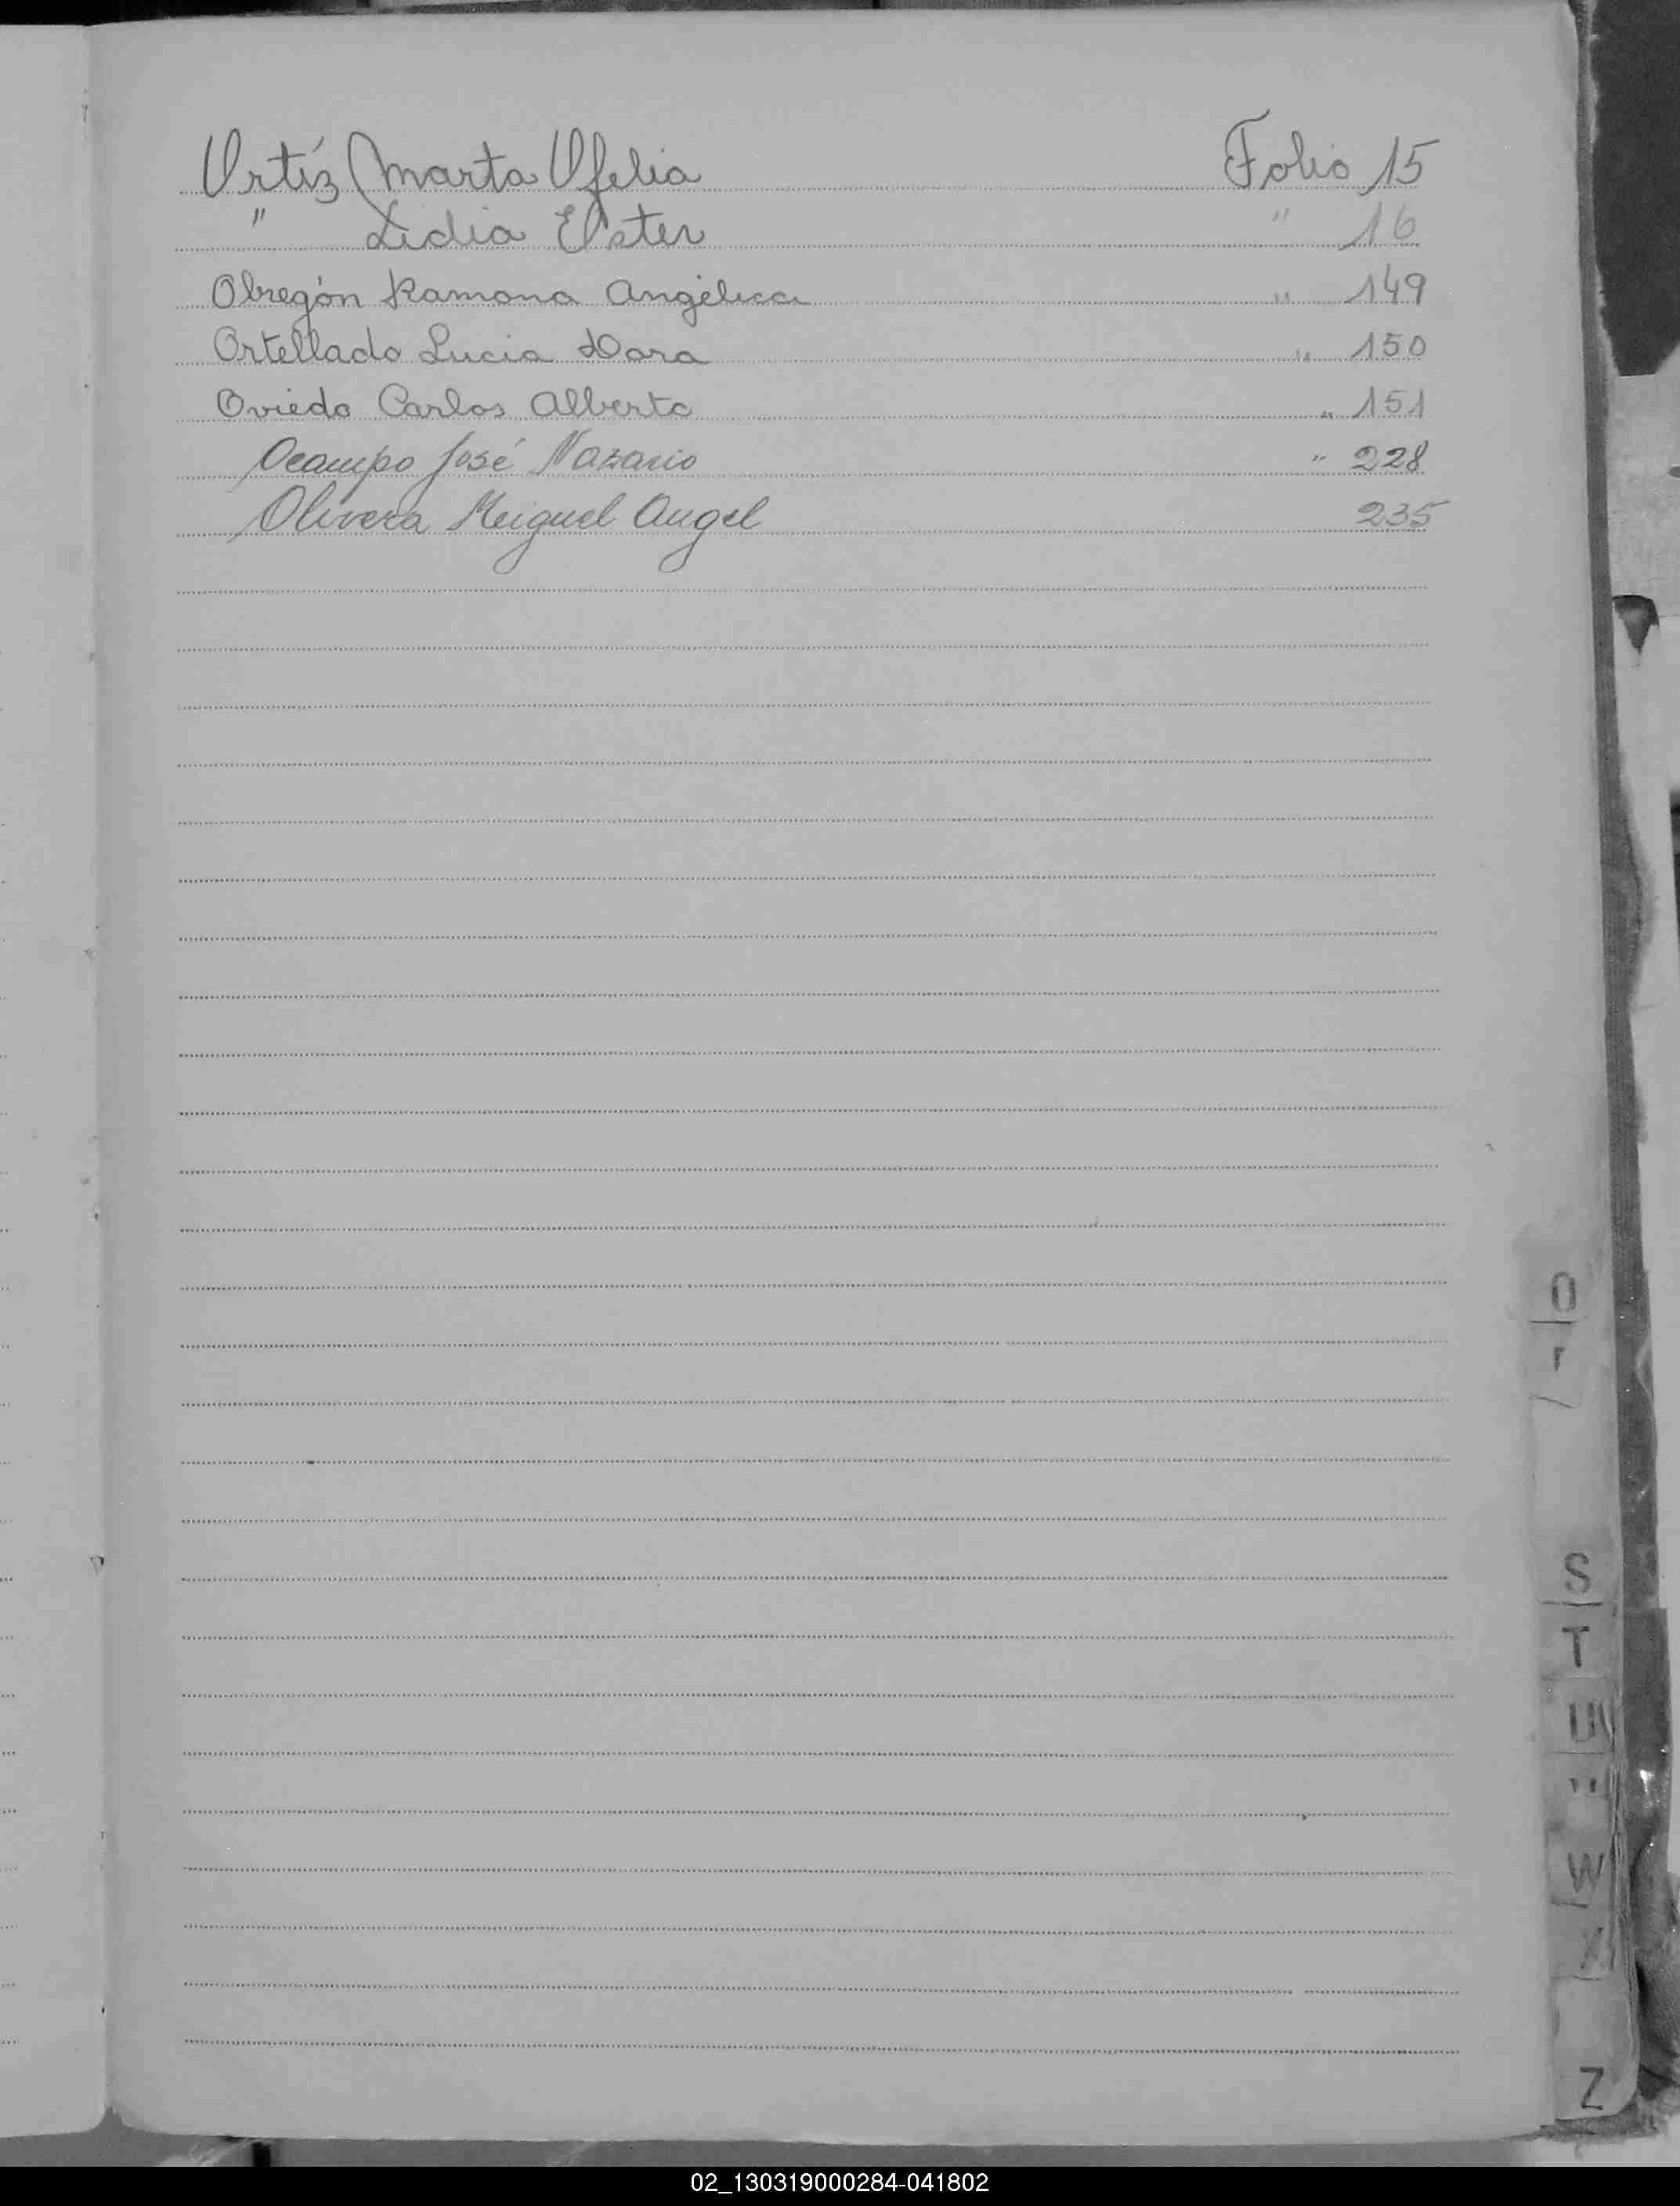 Ortíz Marta Ofelia Folio 15
" Lidia Ester " 16
Obregón Ramona Angélica " 149
Ortellado Lucia Dora " 150
Oviedo Carlos Alberto " 151
Ocampo José Nazario " 228
Olivera Miguel Angel 235
O
S
T
U
W
X
Z
02_130319000284-041802